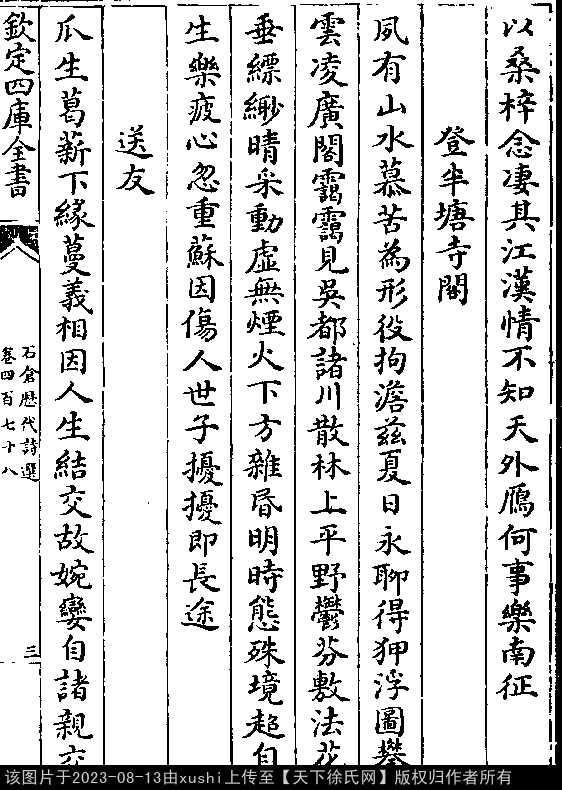 以桑梓念凄其江漢情不知天外鴈何事樂南征
登半塘寺閣
夙有山水慕苦為形役拘澹兹夏日永聊得狎浮圖攀
雲凌廣閣靄靄見吳都諸川散林上平野鬱芬敷法花
垂縹緲晴采動虛無煙火下方雜昏明時態殊境超自
生樂疲心忽重蘇因傷人世子擾擾即長途
送友
瓜生葛薪下緣蔓義相因人生結交故婉孌自諸親交
欽定四庫全書
石倉歷代詩選
卷四百七十八
三
该图片于2023-08-13由xushi上传至【天下徐氏网】版权归作者所有